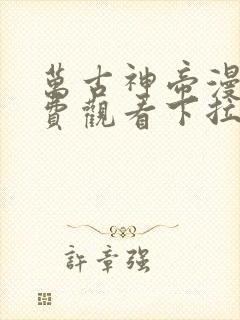 萬古神帝漫
費觀看下拉
許章强